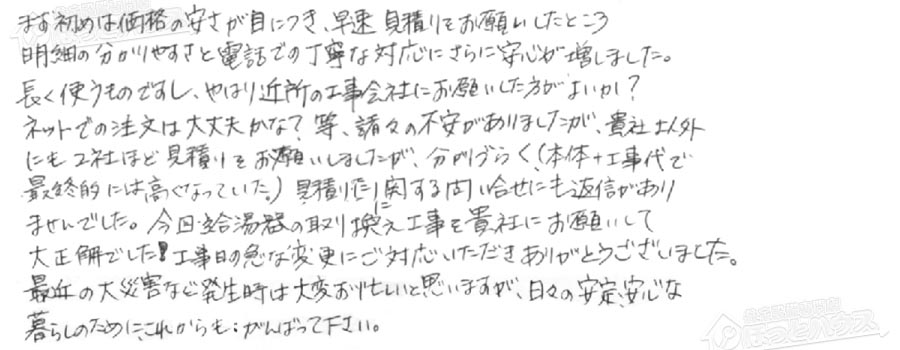 まず初めは価格の安さが目につき、早速見積りをお願いしたところ
明細の分かりやすさと電話での丁寧な対応にさらに安心が増しました。
長く使うものですし、やはり近所の工事会社にお願いした方がよいか?
ネットでの注文は大丈夫かな?等、諸々の不安がありましたが、貴社以外
にも2社ほど見積りをお願いしましたが、分かりづらく(本体+工事代で
最終的には高くなっていた。)見積りに関する問い合せにも返信があり
ませんでした。今回給湯器の取り換え工事を貴社にお願いして
大正解でした!工事日の急な変更にご対応いただきありがとうございました。
最近の大災害など発生時は大変お忙しいと思いますが、日々の安定、安心な
暮らしのために、これからも、がんばって下さい。
ほっとハウス